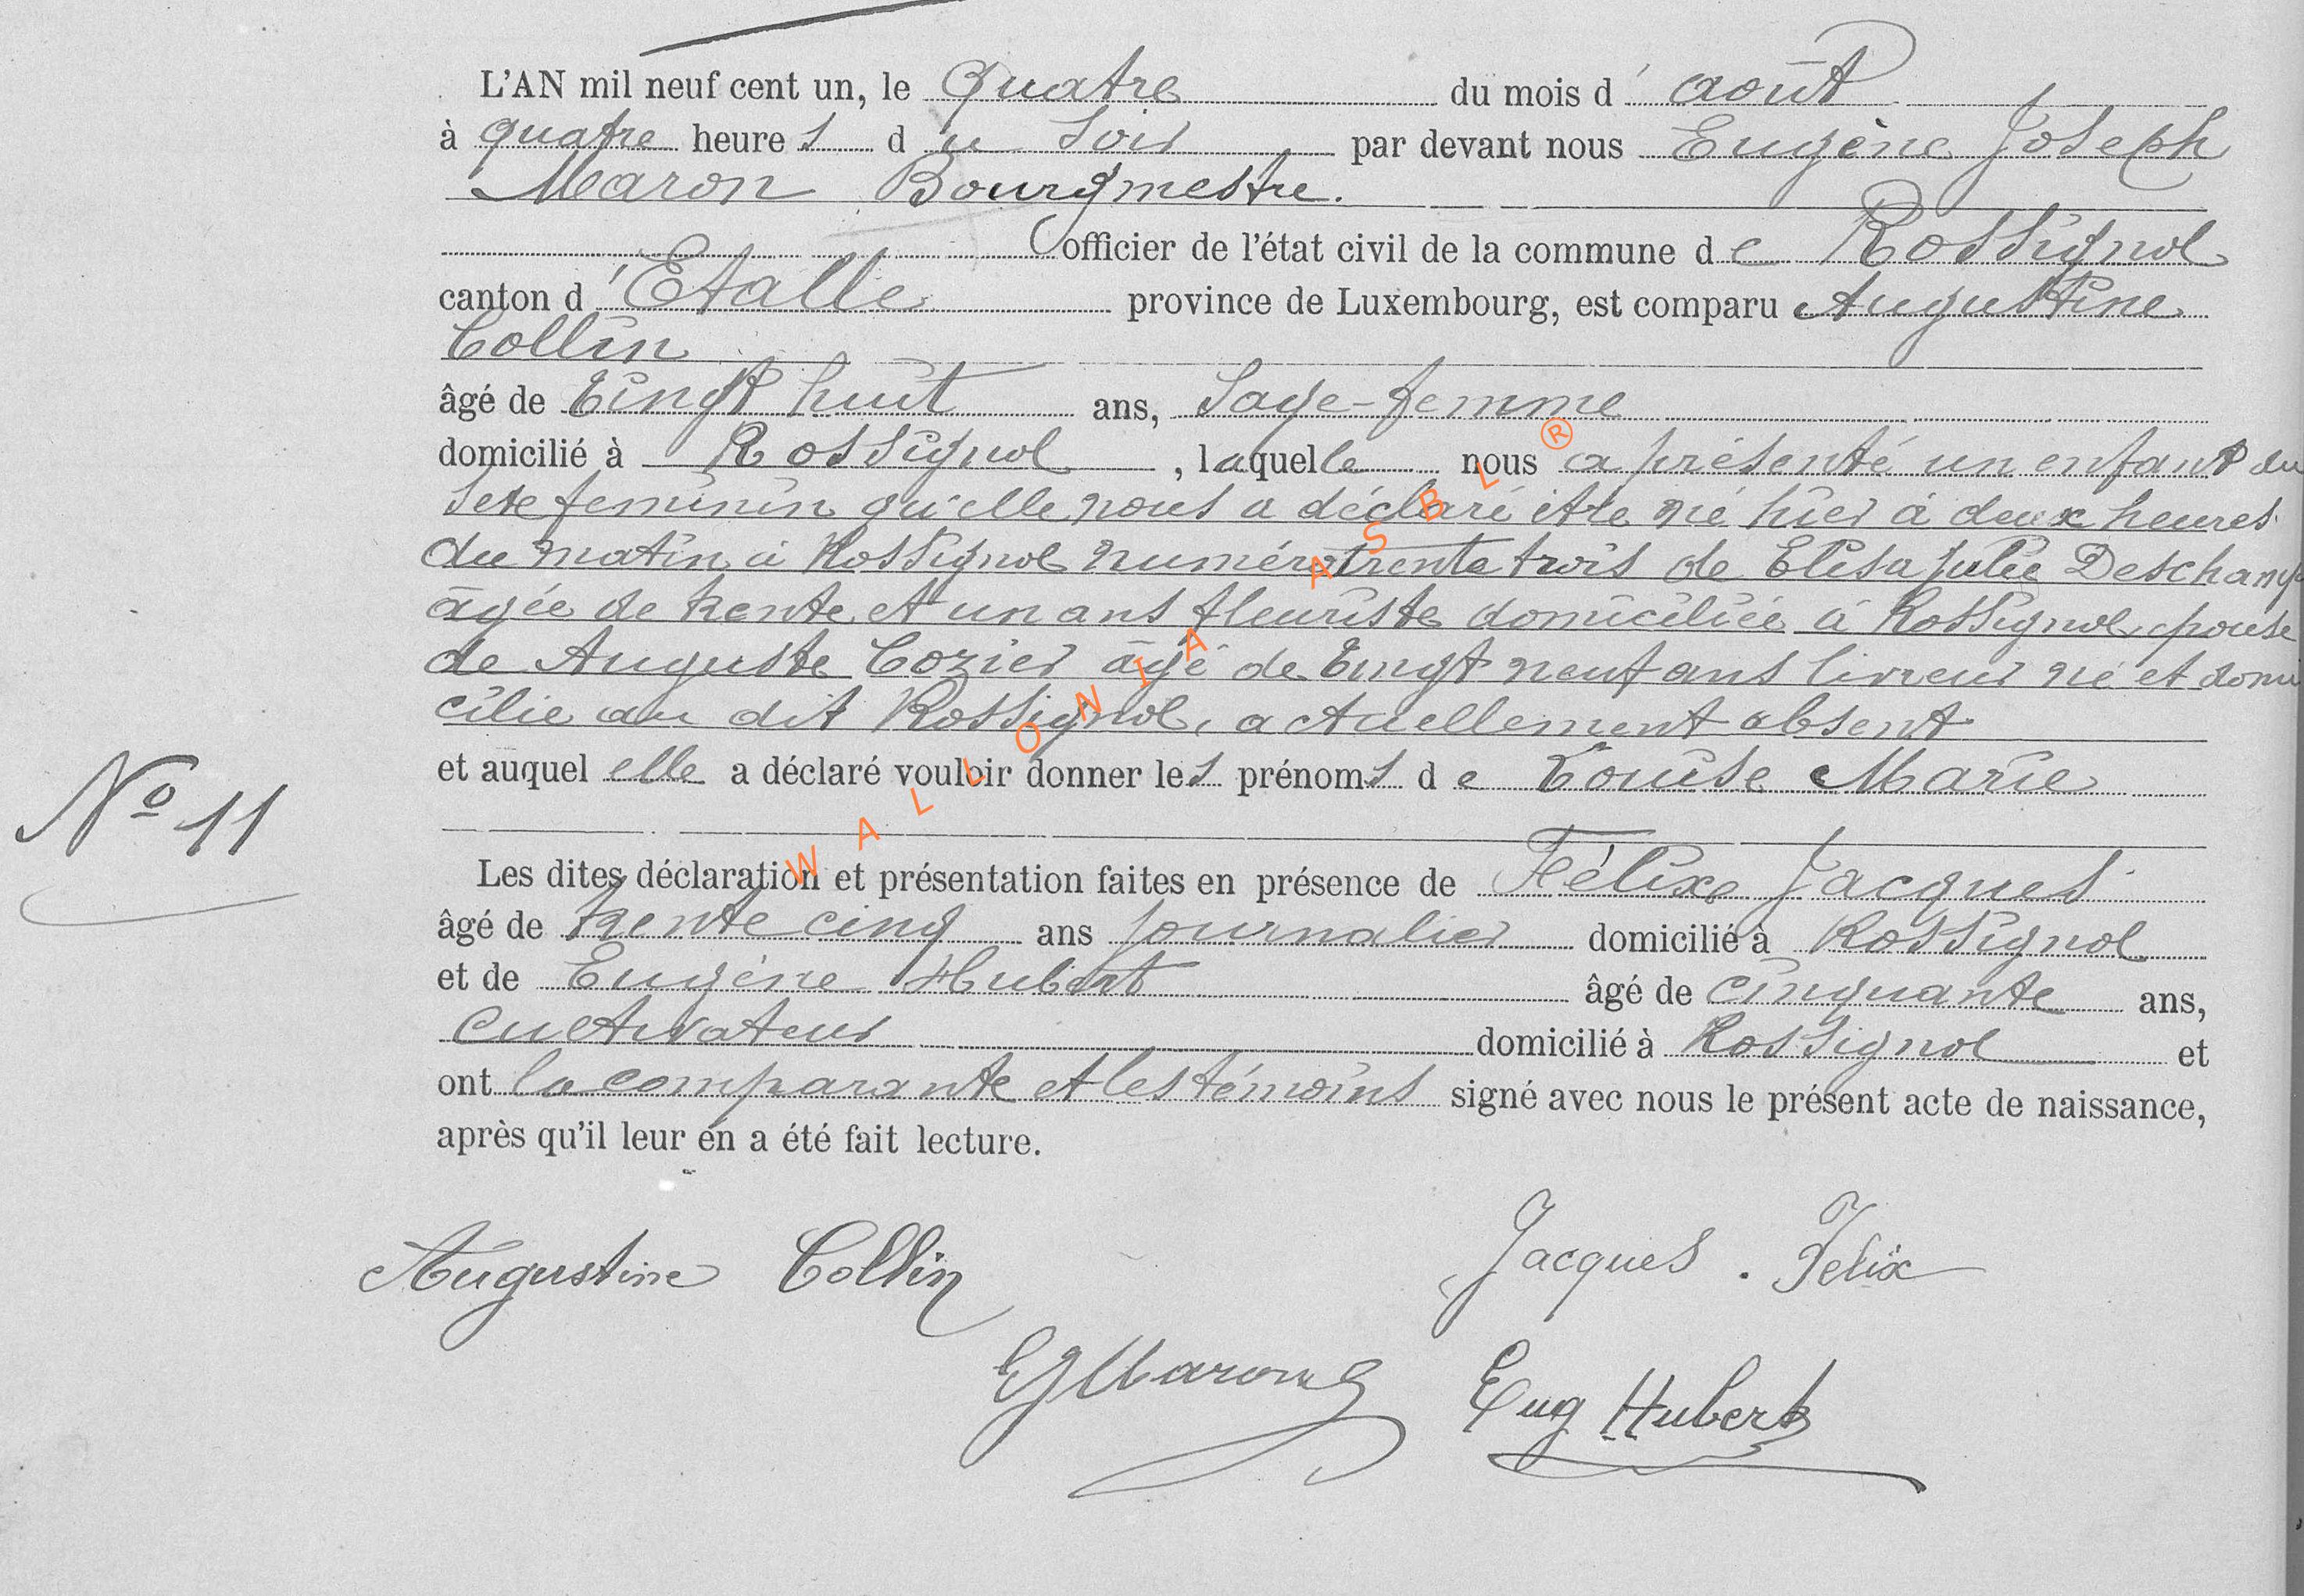 L'AN mil neuf cent un, le Quatre du mois d'août
à quatre heures du Soir par devant nous Eugène Joseph
Maron Bourgmestre.
officier de l'état civil de la commune de Rossignol
canton d'Etalle province de Luxembourg, est comparu Augustine
Collin
âgé de Vingt huit ans, Sage-femme
domicilié à Rossignol, laquelle nous a présenté un enfant du
sexe feminin qu'elle nous a déclaré être né hier à deux heures
du matin à Rossignol numéro trente trois de Elisa Julie Deschamps
âgée de trente et un ans fleuriste domiciliée à Rossignol, épouse
de Auguste Cozier âgé de Vingt neuf ans livreur né et domi
cilié au dit Rossignol, actuellement absent
et auquel elle a déclaré vouloir donner les prénoms de Louise Marie
Nº 11
Les dites déclaration et présentation faites en présence de Félix Jacques
âgé de trente cinq ans journalier domicilié à Rossignol
et de Eugène Hubert âgé de cinquante ans,
cultivateur domicilié à Rossignol et
ont la comparante et les témoins signé avec nous le présent acte de naissance,
après qu'il leur en a été fait lecture.
Augustine Collin
Jacques. Felix
EJMaron
Eug Hubert
WALLONIA ASBL ®